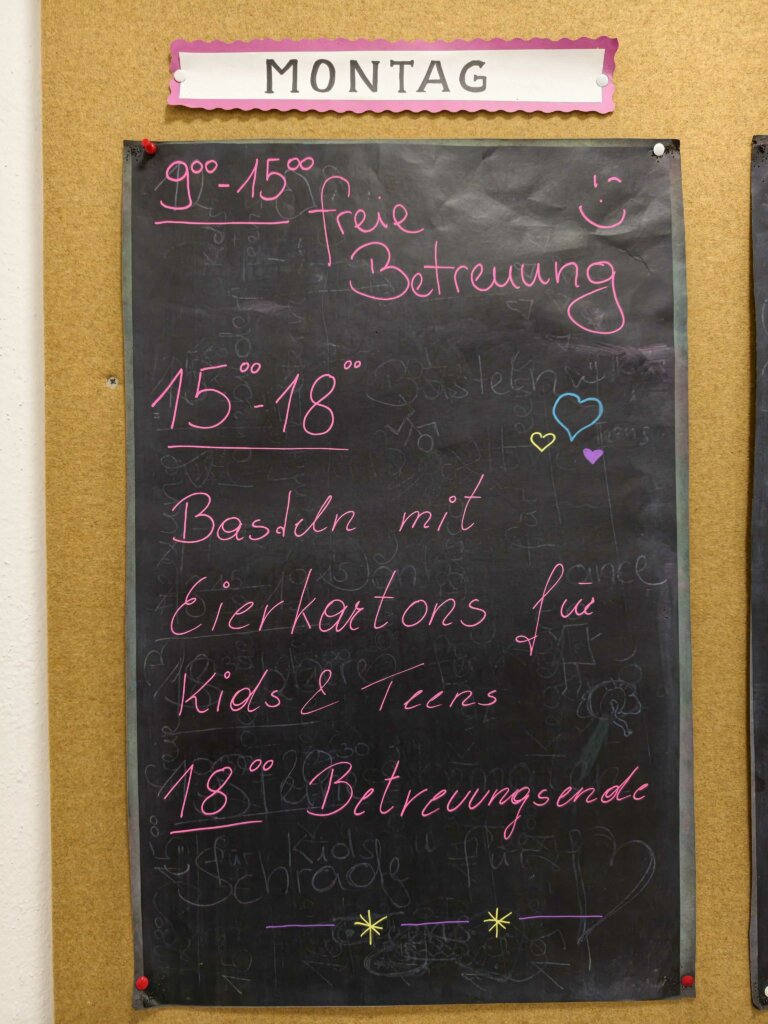 MONTAG
9⁰⁰-15⁰⁰
freie
Betreuung
15⁰⁰-18⁰⁰
Basteln mit
Eierkartons für
Kids & Teens
18⁰⁰ Betreuungsende